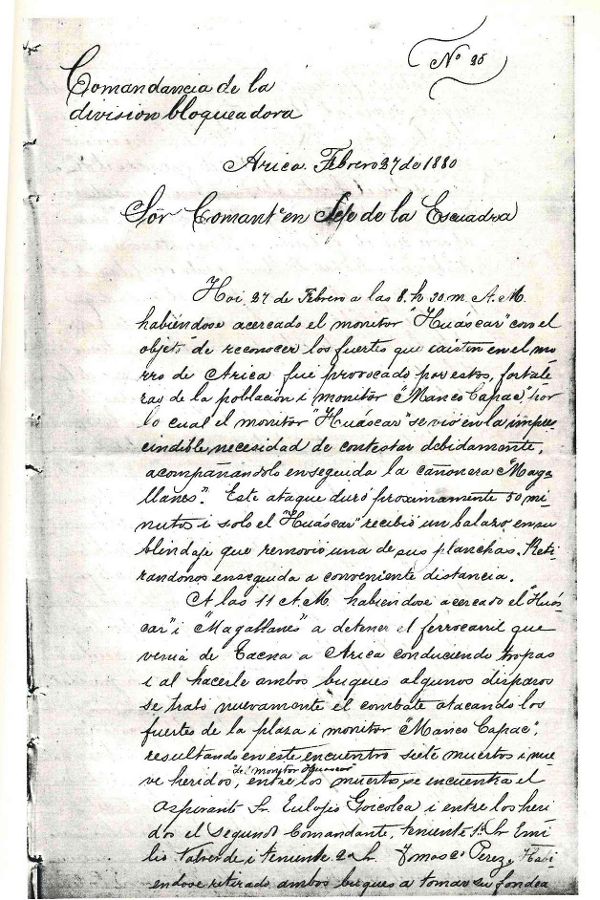 Nº 25
Comandancia de la
division bloqueadora
Arica. Febrero 27 de 1880
Sór Comant.e en Jefe de la Escuadra
Hoi 27 de Febrero a las 8.h 30.m A.M.
habiéndose acercado el monitor "Huáscar" con el
objeto de reconocer los fuertes que existen en el mo
rro de Arica fué provocado por estos, fortale
zas de la poblacion i monitor "Manco Capac" por
lo cual el monitor "Huáscar" se vió en la impres
cindible necesidad de contestar debidamente,
acompañándolo enseguida la cañonera "Maga
llanes". Este ataque duró proximamente 50 mi
nutos i solo el "Huáscar" recibió un balazo en su
blindaje que removió una de sus planchas. Reti
randonos enseguida a conveniente distancia.
A las 11 A.M. habiendose acercado el "Huás
car" i "Magallanes" a detener el ferrocarril que
venia de Tacna a Arica conduciendo tropas
i al hacerle ambos buques algunos disparos
se trabó nuevamente el combate atacando los
fuertes de la plaza i monitor "Manco Capac",
resultando en este encuentro siete muertos i nue
del monitor Huáscar
ve heridos, entre los muertos se encuentra el
aspirante Sr. Eulojio Goicolea i entre los heri
dos el segundo Comandante, teniente 1º Sr Emi
lio Valverde i teniente 2º Sr. Tomas 2º Perez. Habi
endose retirado ambos buques a tomar su fondea